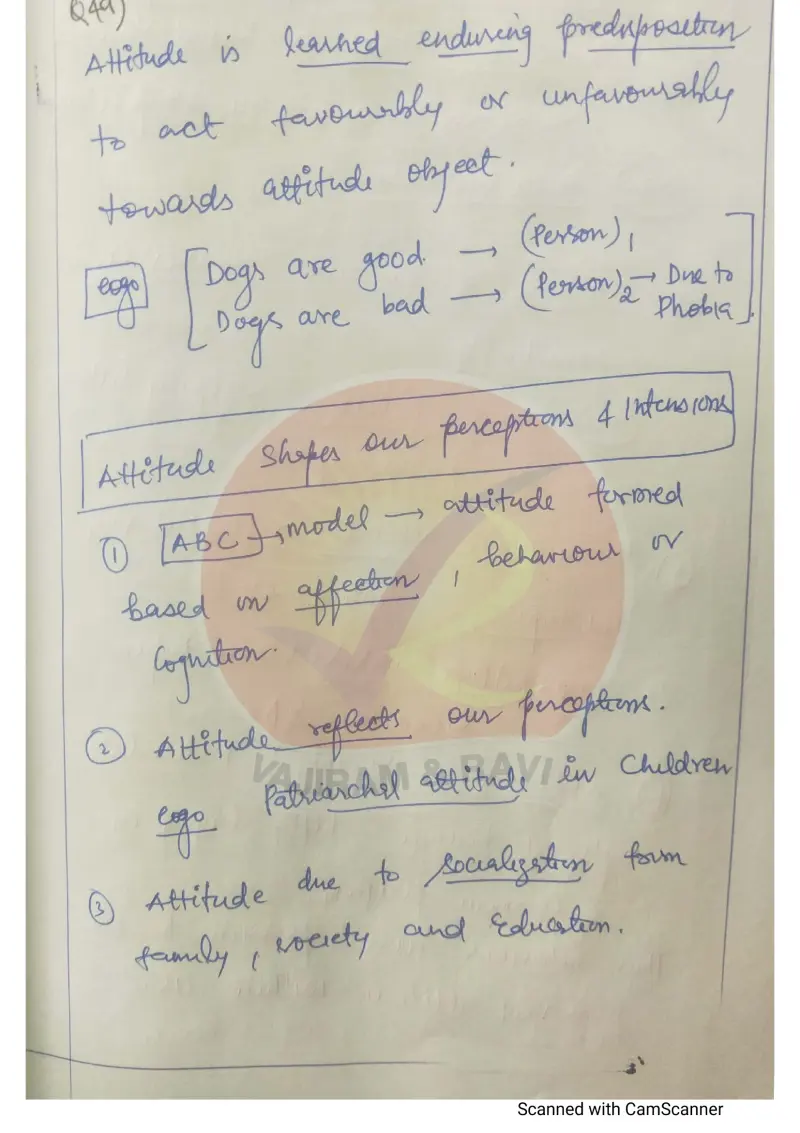 Q4a)
Attitude is learned enduring predisposition
to act favourably or unfavourably
towards attitude object.
e.g. [Dogs are good → (Person)1
Dogs are bad → (Person)2 → Due to
Phobia].
Attitude shapes our perceptions & Intensions
① ABC → model → attitude formed
based on affection, behaviour or
Cognition.
② Attitude reflects our perceptions.
VAJIRAM & RAVI
e.g. Patriarchal attitude in Children
③ Attitude due to socialization from
family, society and Education.
Scanned with CamScanner